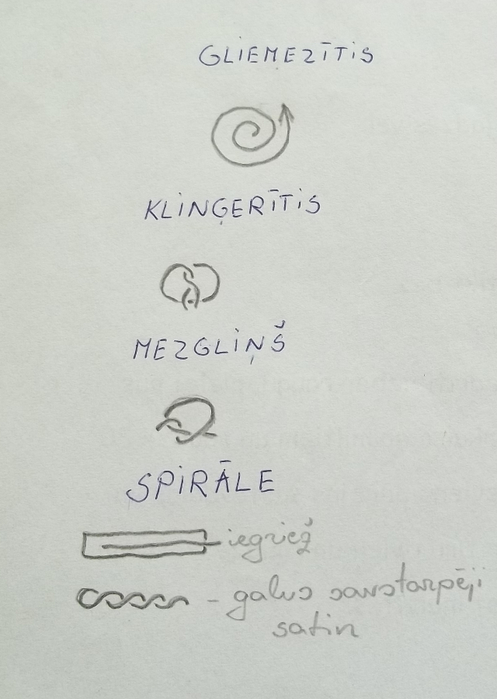 GLIEMEZĪTIS
KLIŅĢERĪTIS
MEZGLIŅŠ
SPIRĀLE
iegriež
- galus savstarpēji
satin